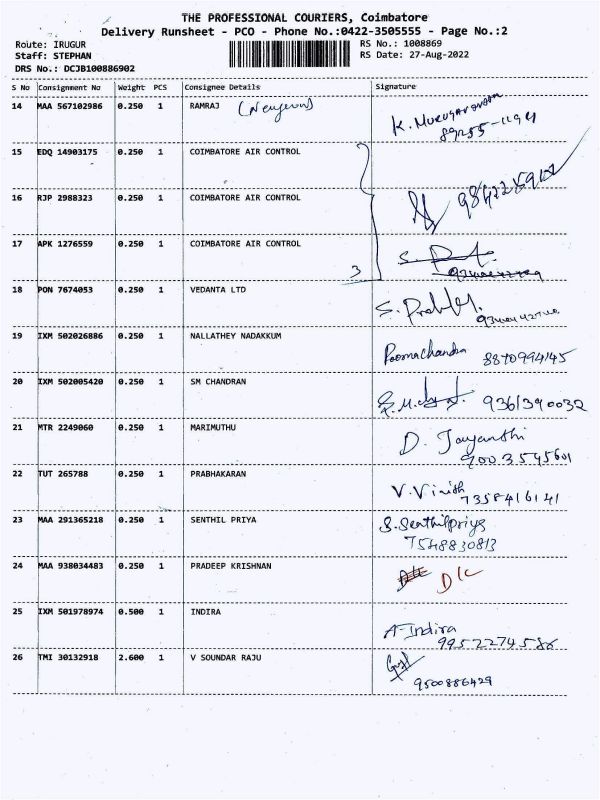 THE PROFESSIONAL COURIERS, Coimbatore
Delivery Runsheet - PCO - Phone No.:0422-3505555 - Page No.:2
Route: IRUGUR RS No.: 1008869
Staff: STEPHAN RS Date: 27-Aug-2022
DRS No.: DCJB100886902
S No Consignment No Weight PCS Consignee Details Signature
14 MAA 567102986 0.250 1 RAMRAJ K. Murugavardan
89255-1194
15 EDQ 14903175 0.250 1 COIMBATORE AIR CONTROL
16 RJP 2988323 0.250 1 COIMBATORE AIR CONTROL
17 APK 1276559 0.250 1 COIMBATORE AIR CONTROL
3
18 PON 7674053 0.250 1 VEDANTA LTD
19 IXM 502026886 0.250 1 NALLATHEY NADAKKUM Poornachandra 8870994145
20 IXM 502005420 0.250 1 SM CHANDRAN 9361390032
21 MTR 2249060 0.250 1 MARIMUTHU D. Jayanthi
9003545601
22 TUT 265788 0.250 1 PRABHAKARAN V. Vinith 7358416141
23 MAA 291365218 0.250 1 SENTHIL PRIYA S. Senthilpriya
7548830813
24 MAA 938034483 0.250 1 PRADEEP KRISHNAN D/C
25 IXM 501978974 0.500 1 INDIRA A-Indira
9952274586
26 TMI 30132918 2.600 1 V SOUNDAR RAJU
9500886429